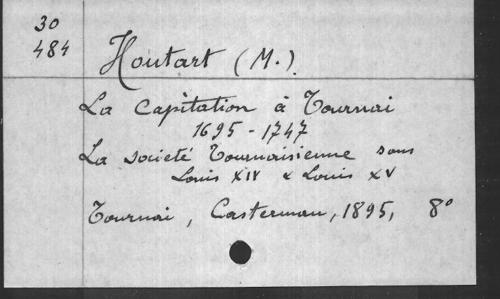 30
484
Houtart (M.)
La Capitation à Tournai
1695-1747
La societé Tournaisienne sous
Louis XIV & Louis XV
Tournai, Casterman, 1895, 8°